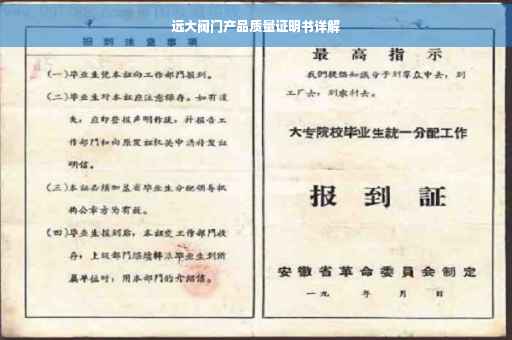 远大阀门产品质量证明书详解
报到注意事项
(一)毕业生凭本証向工作部門报到。
(二)毕业生对本証应注意保存。如有遗
失,应即登报声明作废,并报告工
作部門和向原发証机关申請补发証
明信。
(三)本証必须加盖省毕业生分配領导机
构公章方为有效。
(四)毕业生报到后,本証交工作部門收
存;上级部門继續轉派毕业生到所
属单位时,用本部門的介紹信。
最高指示
我們提倡知識分子到羣众中去,到
工厂去,到农村去。
大专院校毕业生統一分配工作
报到証
安徽省革命委員会制定
一九 年 月 日